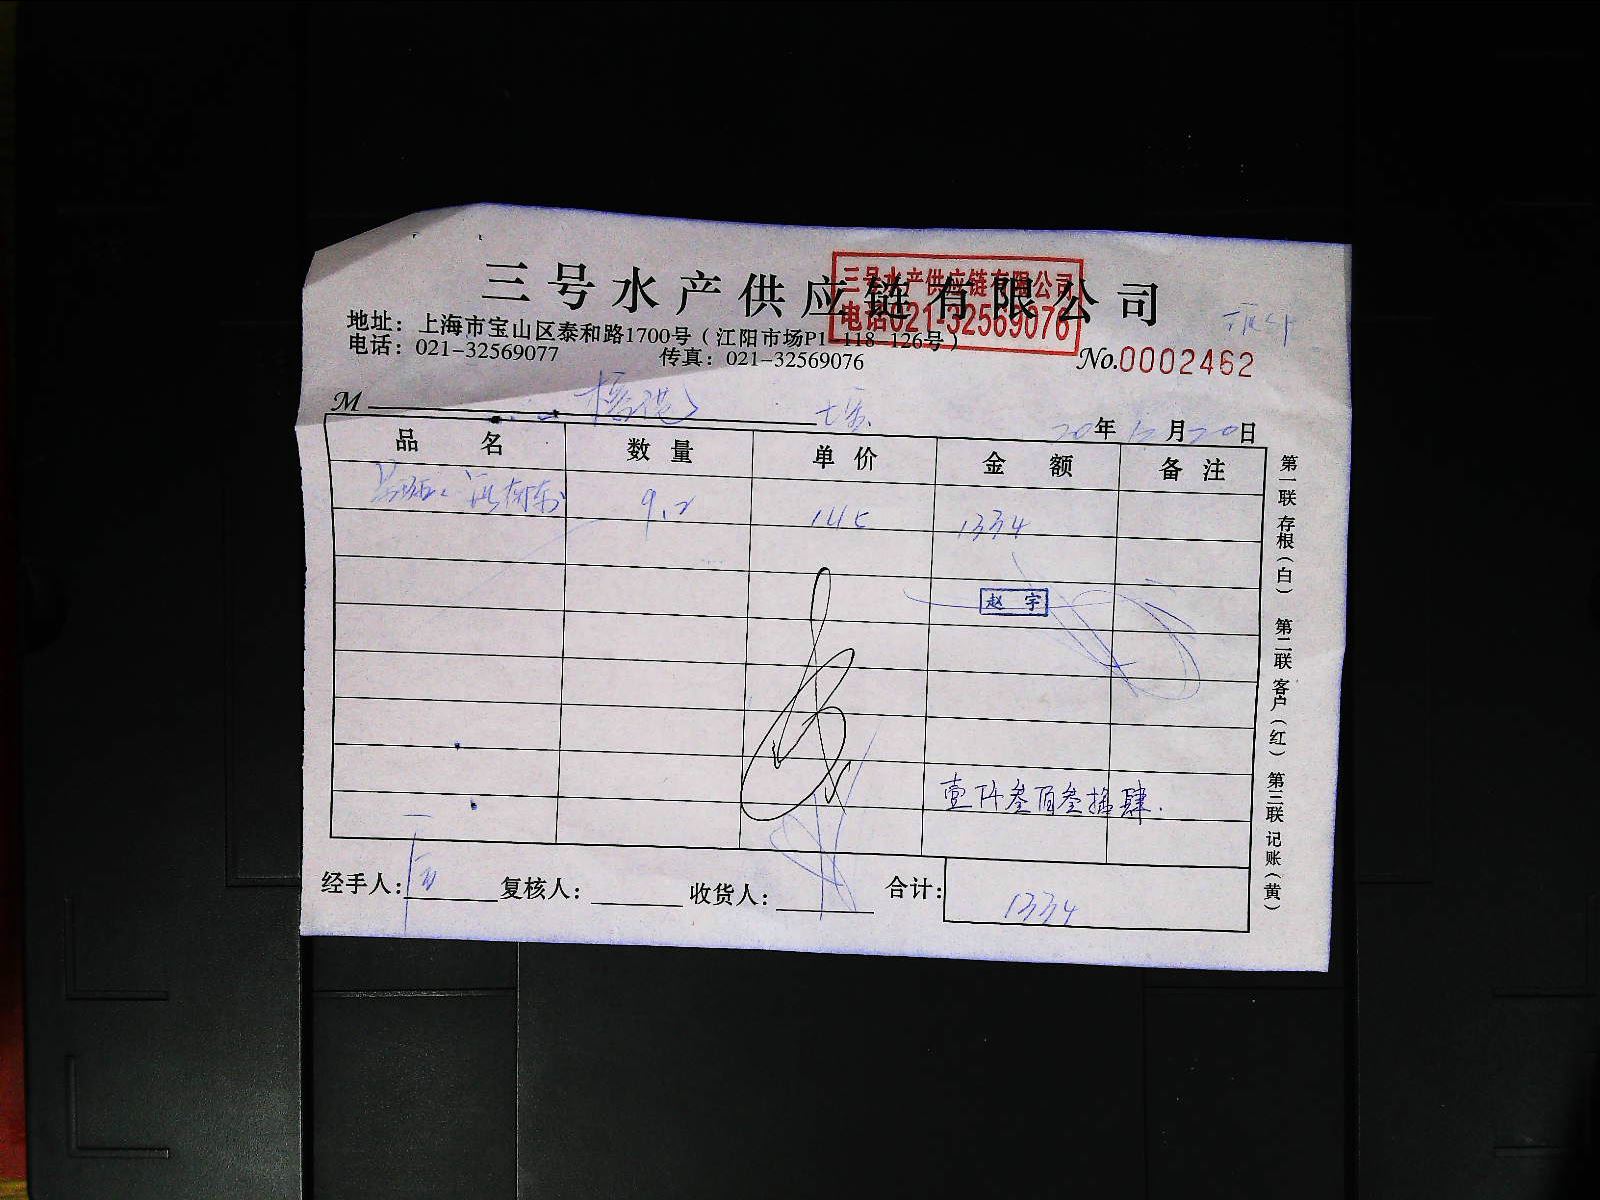 三号水产供应链有限公司
三号水产供应链有限公司
电话021-32569076
地址：上海市宝山区泰和路1700号（江阳市场P1-118-126号）
电话：021-32569077 传真：021-32569076
No.0002462
M
20年12月20日
品名 数量 单价 金额 备注
9.2 145 1334
赵宇
壹仟叁佰叁拾肆.
经手人： 复核人： 收货人： 合计：1334
第一联存根（白） 第二联客户（红） 第三联记账（黄）